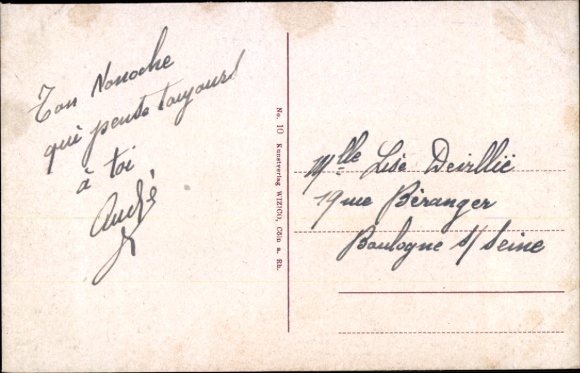 Ton Nonoche
qui pense toujours
à toi
André
No. 10 Kunstverlag WIZICO, Cöln a. Rh.
Mlle Lise Deirllié
19 rue Béranger
Boulogne s/ Seine